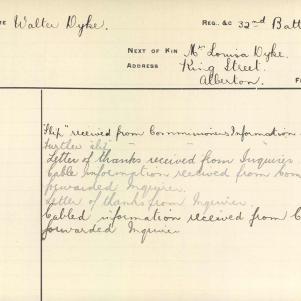 Walter Dyke. Reg. &c 32nd Batt
Next of Kin Mrs Louisa Dyke.
Address King Street.
Alberton.
"Slip" received from Commrs Information
Further "slip" " " "
Letter of thanks received from Inquirer
Cable Information received from Com
forwarded Inquirer.
Letter of thanks from Inquirer.
Cabled information received from C
forwarded Inquirer